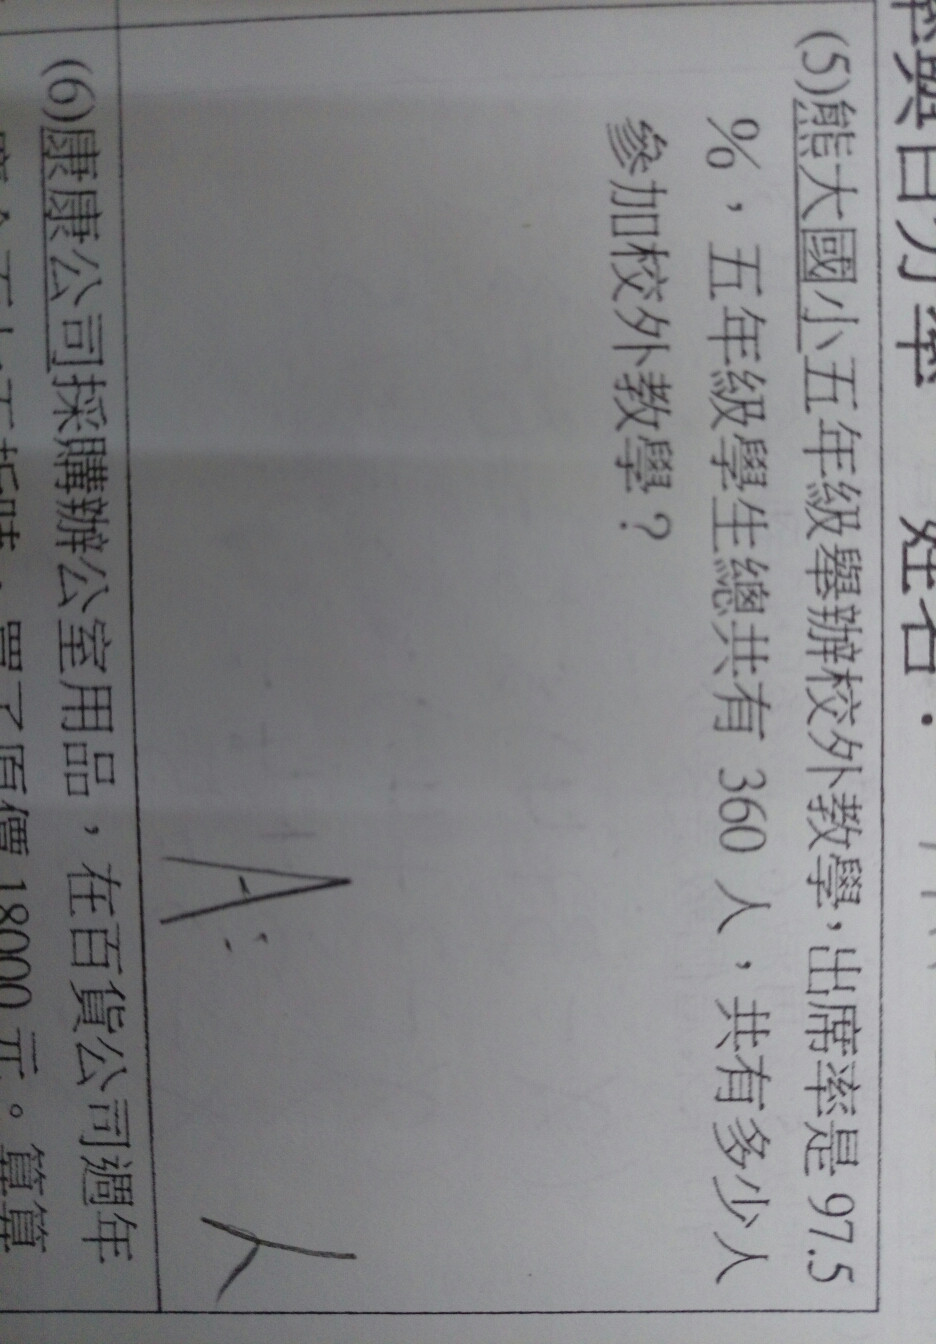 率與百分率 姓名：
(5)熊大國小五年級舉辦校外教學，出席率是 97.5
%，五年級學生總共有 360 人，共有多少人
參加校外教學？
A: 人
(6)康康公司採購辦公室用品，在百貨公司週年
買了原價 18000 元。算算